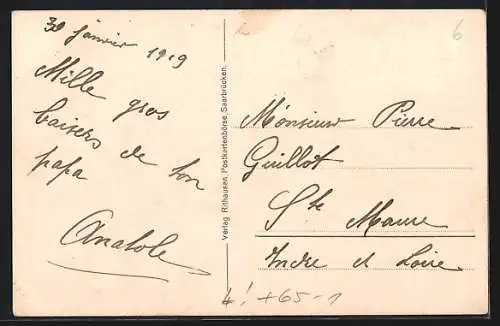 30 janvier 1919
Mille gros
baisers de ton
papa
Anatole
Verlag Rithausen, Postkartenbörse, Saarbrücken.
Monsieur Pierre
Guillot
Ste Maure
Indre et Loire
4! +65-1
6